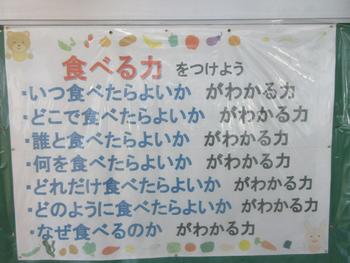 食べる力 をつけよう
・いつ食べたらよいか がわかる力
・どこで食べたらよいか がわかる力
・誰と食べたらよいか がわかる力
・何を食べたらよいか がわかる力
・どれだけ食べたらよいか がわかる力
・どのように食べたらよいか がわかる力
・なぜ食べるのか がわかる力